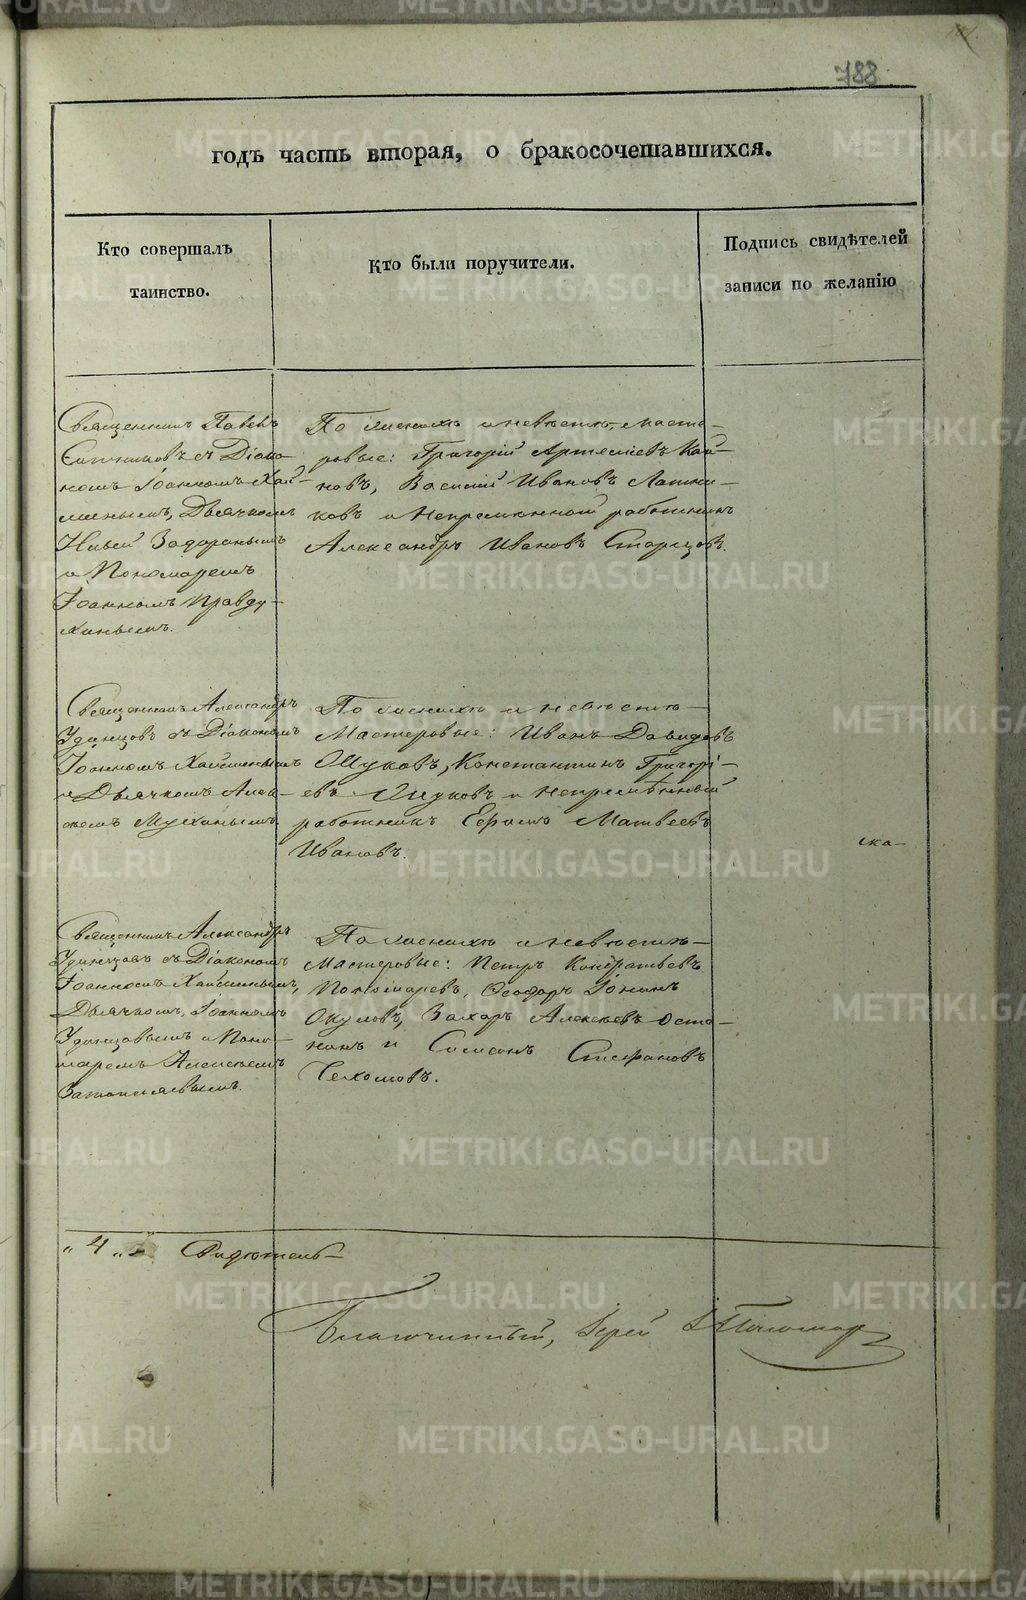 788
годъ часть вторая, о бракосочетавшихся.
Кто совершалъ
таинство.
Кто были поручители.
Подпись свидѣтелей
записи по желанію
Священникъ Павелъ
съ Діако-
номъ Іоанномъ Хай-
минымъ, Дьячкомъ
Ильей Задоринымъ
и Пономаремъ
Іоанномъ Правду-
хинымъ.
По женихѣ и невѣстѣ масте-
ровые: Григорій Артеміевъ Кай-
новъ, Василій Ивановъ Латни-
ковъ и Непремѣнной работникъ
Александръ Ивановъ Старцовъ.
Священникъ Александръ
Удинцовъ съ Діакономъ
Іоанномъ Хайминымъ
и Дьячкомъ Алек-
сѣемъ Мухинымъ.
По женихѣ и невѣстѣ
Мастеровые: Иванъ Давидовъ
Константинъ Григорі-
евъ и Непремѣнный
работникъ Ефимъ Матвеевъ
Ивановъ.
ска-
Священникъ Александръ
Удинцовъ съ Діакономъ
Іоанномъ Хайминымъ,
Дьячкомъ Іоанномъ
Удинцовымъ и Поно-
маремъ Алексѣемъ
По женихѣ и невѣстѣ
Мастеровые: Петръ Кондратьевъ
Пономаревъ, Ѳеодоръ Іонинъ
Окуловъ, Захаръ Алексѣевъ Оста-
нинъ и Симеонъ Стефановъ
Чехомовъ.
„ 4 „
Свидѣтель
Благочинный, Іерей
METRIKI.GASO-URAL.RU